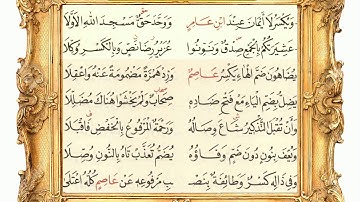 وَيُكْسَرُ لَا أَيْمَانَ عِنْدَ ابْنِ عَامِرٍ وَوَحَّدَ حَقٌّ مَسْجِدَ اللهِ الَاوَّلَا
عَشِيرَاتُكُمْ بِالْجَمْعِ صِدْقٌ وَنَوِّنُوا عُزَيْرُ رِضَا نَصٍّ وَبِالْكَسْرِ وُكِّلَا
يُضَاهُونَ ضَمَّ الْهَاءِ يَكْسِرُ عَاصِمٌ وَزِدْ هَمْزَةً مَضْمُومَةً عَنْهُ وَاعْقِلَا
يُضَلُّ بِضَمِّ الْيَاءِ مَعْ فَتْحِ ضَادِهِ صِحَابٌ وَلَمْ يَخْشَوْا هُنَاكَ مُضَلِّلَا
وَأَنْ تُقْبَلَ التَّذْكِيرُ شَاعَ وِصَالُهُ وَرَحْمَةٌ الْمَرْفُوعُ بِالْخَفْضِ فَاقْبَلَا
وَيُعْفَ بِنُونٍ دُونَ ضَمٍّ وَفَاؤُهُ يُضَمُّ تُعَذَّبْ تَاهُ بِالنُّونِ وُصِّلَا
وَفِي ذَالِهِ كَسْرٌ وَطَائِفَةٌ بِنَصْـ ـبِ مَرْفُوعِهِ عَنْ عَاصِمٍ كُلُّهُ اعْتَلَى